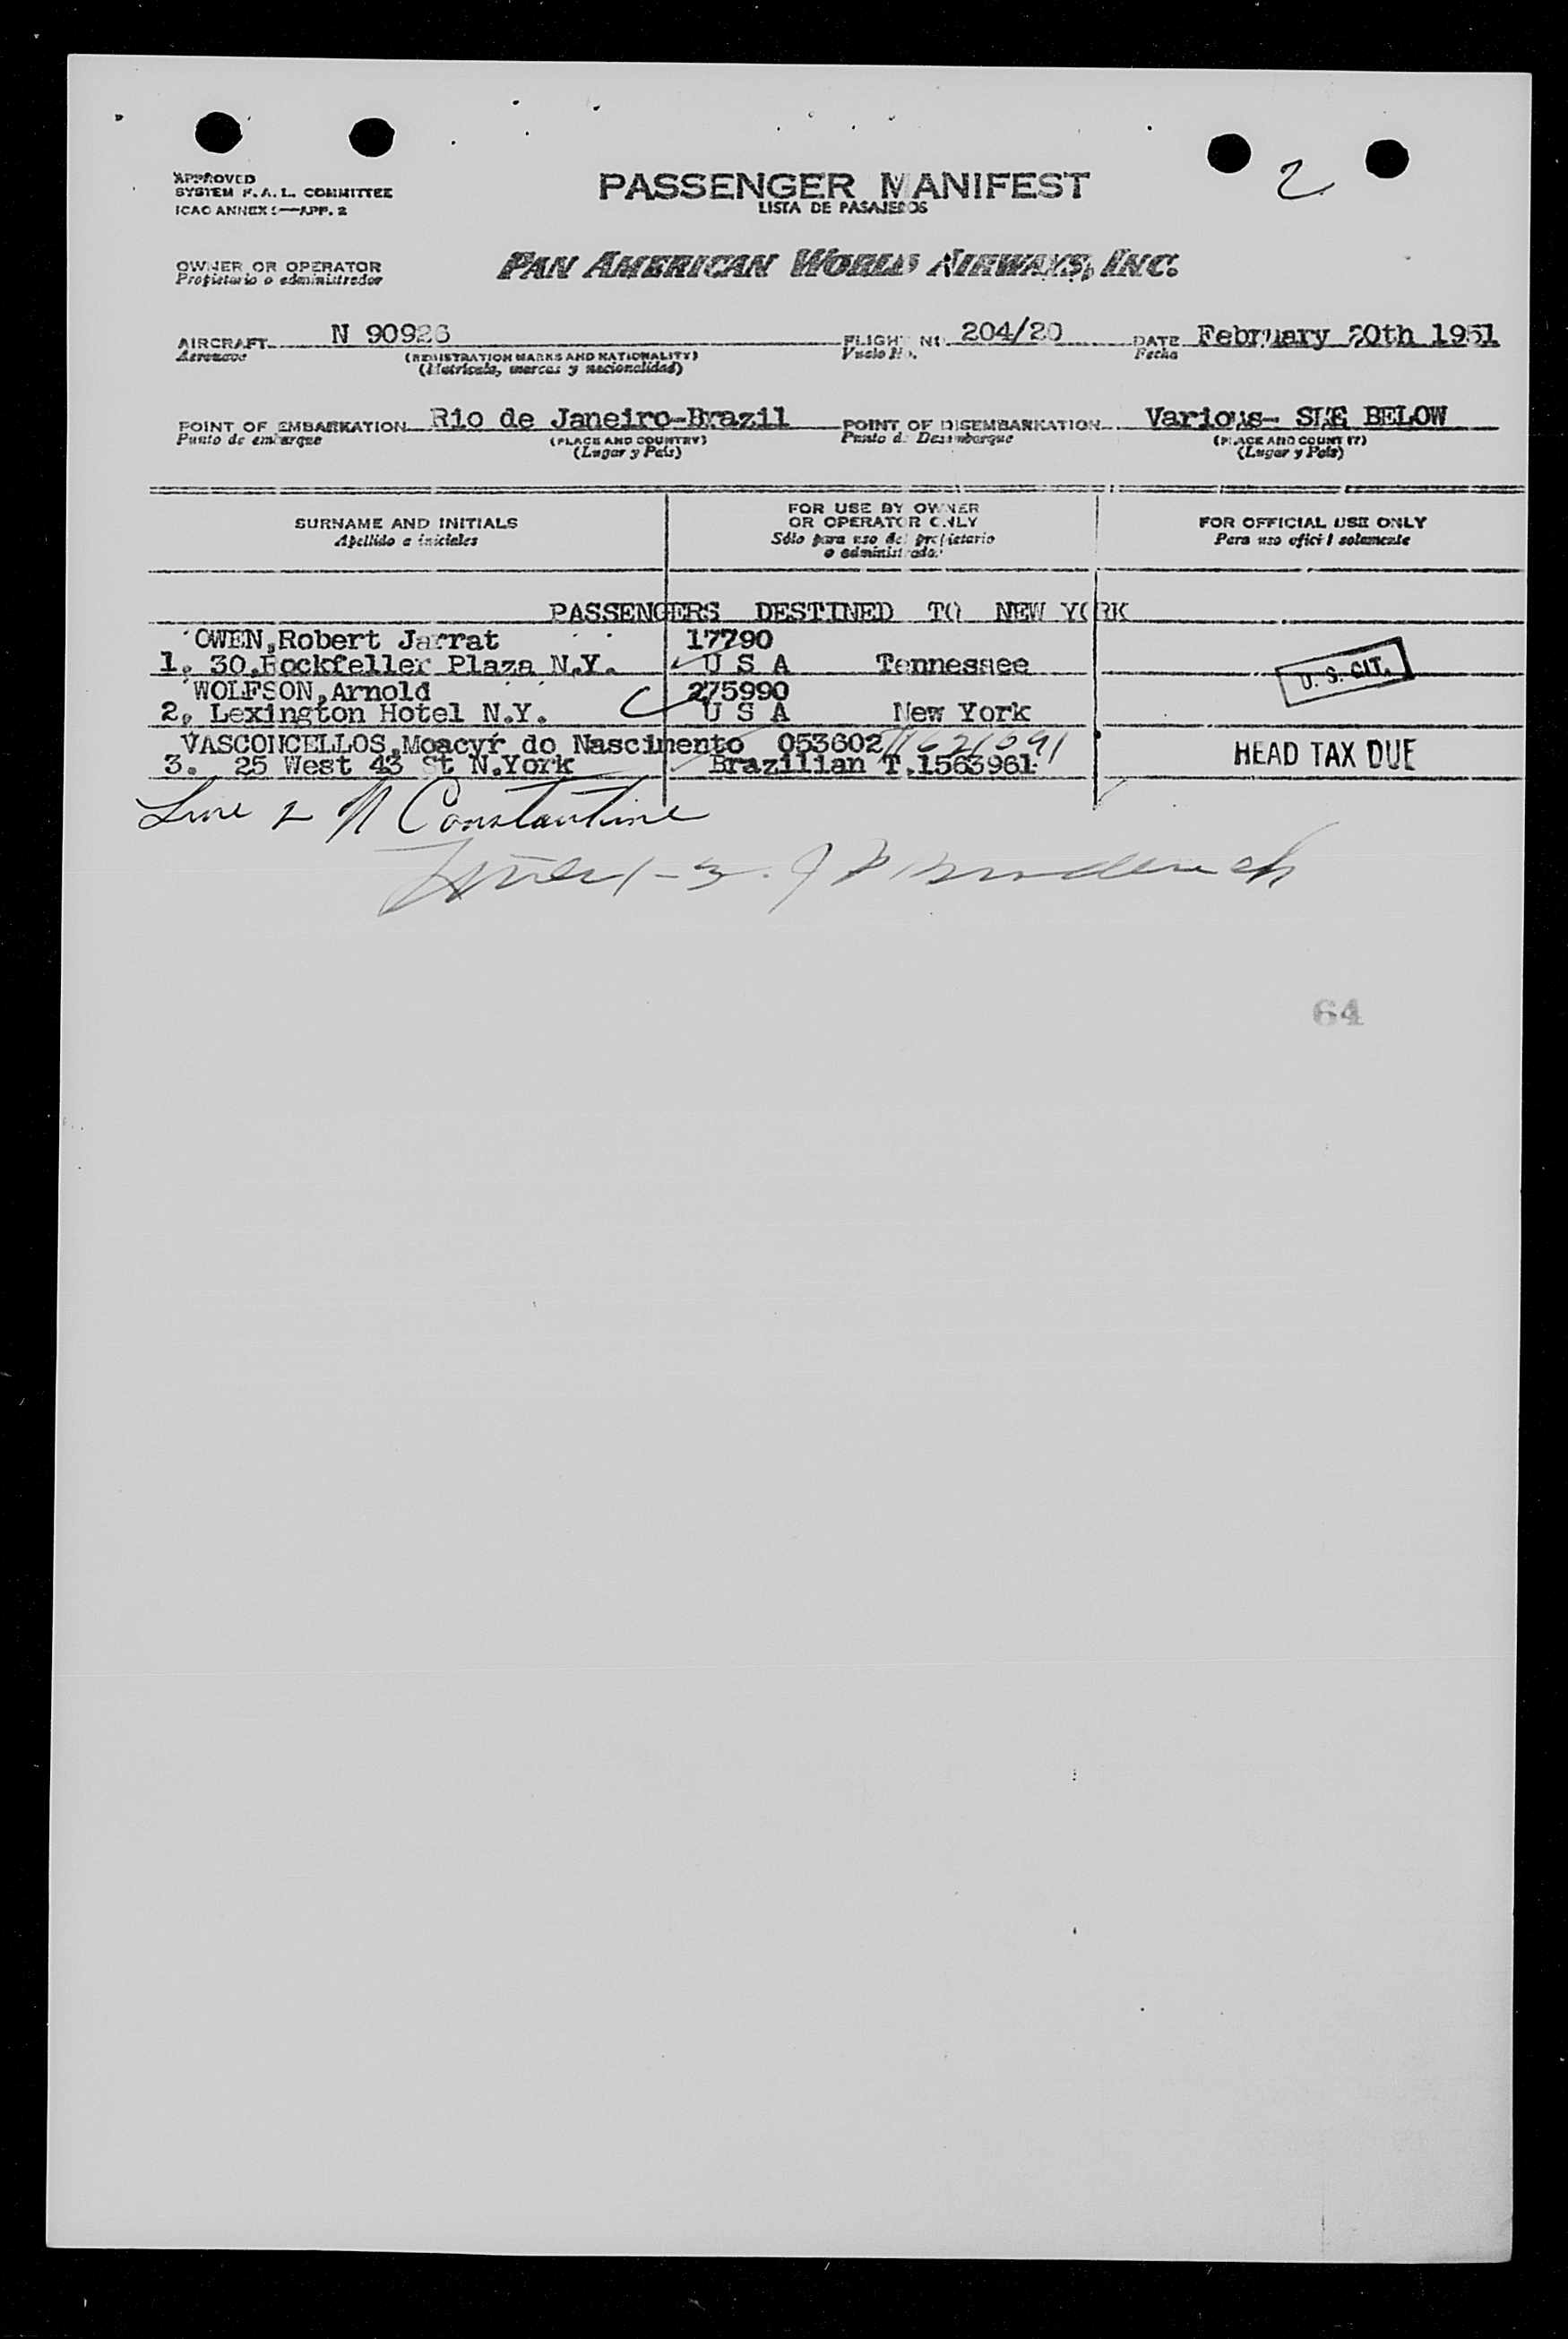 2
APPROVED
SYSTEM F.A.L. COMMITTEE
ICAO ANNEX 9—APP. 2
PASSENGER MANIFEST
LISTA DE PASAJEROS
OWNER OR OPERATOR
Propietario o administrador
PAN AMERICAN WORLD AIRWAYS, INC.
AIRCRAFT N 90926 FLIGHT NO. 204/20 DATE February 20th 1951
Aeronave (REGISTRATION MARKS AND NATIONALITY) Vuelo No. Fecha
(Matricula, marcas y nacionalidad)
POINT OF EMBARKATION Rio de Janeiro-Brazil POINT OF DISEMBARKATION Various- SEE BELOW
Punto de embarque (PLACE AND COUNTRY) Punto de Desembarque (PLACE AND COUNTRY)
(Lugar y País) (Lugar y País)
SURNAME AND INITIALS
Apellido e iniciales
FOR USE BY OWNER
OR OPERATOR ONLY
Sólo para uso del propietario
o administrador
FOR OFFICIAL USE ONLY
Para uso oficial solamente
PASSENGERS DESTINED TO NEW YORK
OWEN,Robert Jarrat 17790
1. 30,Rockfeller Plaza N.Y. U S A Tennessee U. S. CIT.
WOLFSON,Arnold 275990
2. Lexington Hotel N.Y. U S A New York
VASCONCELLOS,Moacyr do Nascimento 053602
3. 25 West 43 St N.York Brazilian T.1563961 HEAD TAX DUE
Line 2 N Constantine
Lines 1-3.
64